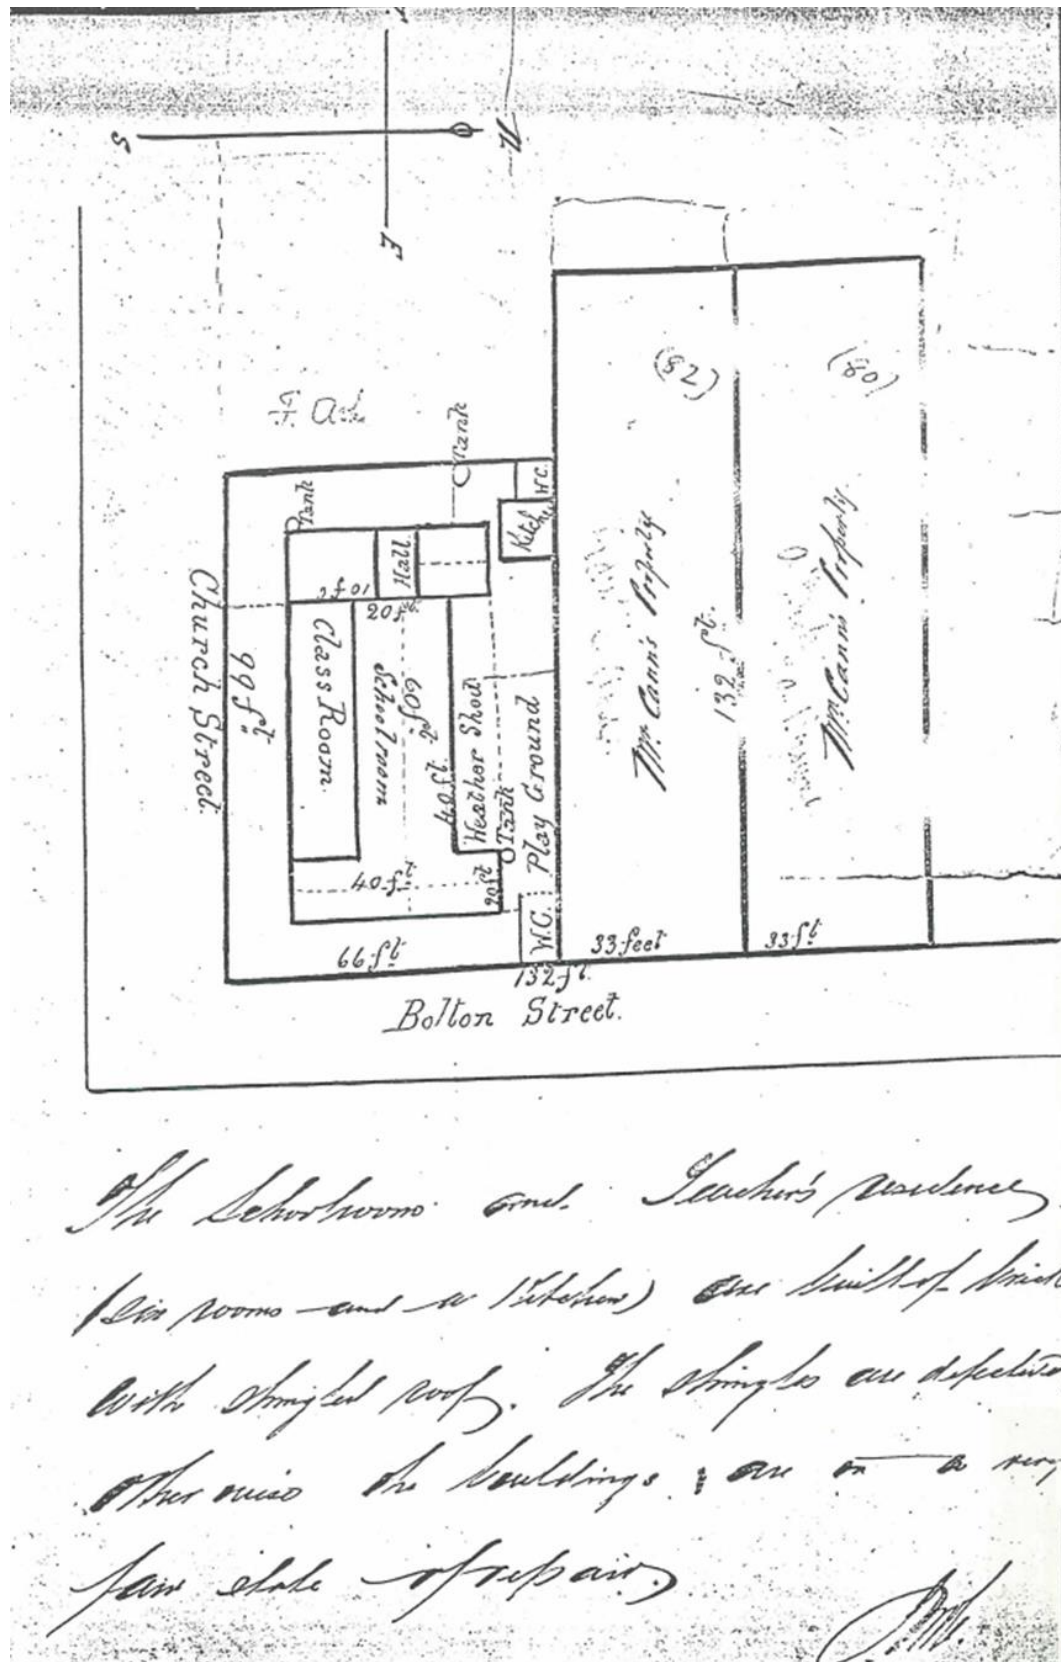 S
N
E
(82)
(80)
Tank
Tank
W.C.
Kitchen
Hall
10 ft
20 ft
Church Street.
99 ft
Class Room
Schoolroom
60 ft
40 ft
Weather Shed
Tank
Play Ground
McCann's Property
132 ft.
McCann's Property
40 ft
20 ft
W.C.
99 ft
33 feet
33 ft
132 ft.
Bolton Street.
The Schoolroom and Teacher's residence
(six rooms and a Kitchen) are built of brick
with shingled roof. The shingles are defective
otherwise the buildings are in a very
fair state of repair.